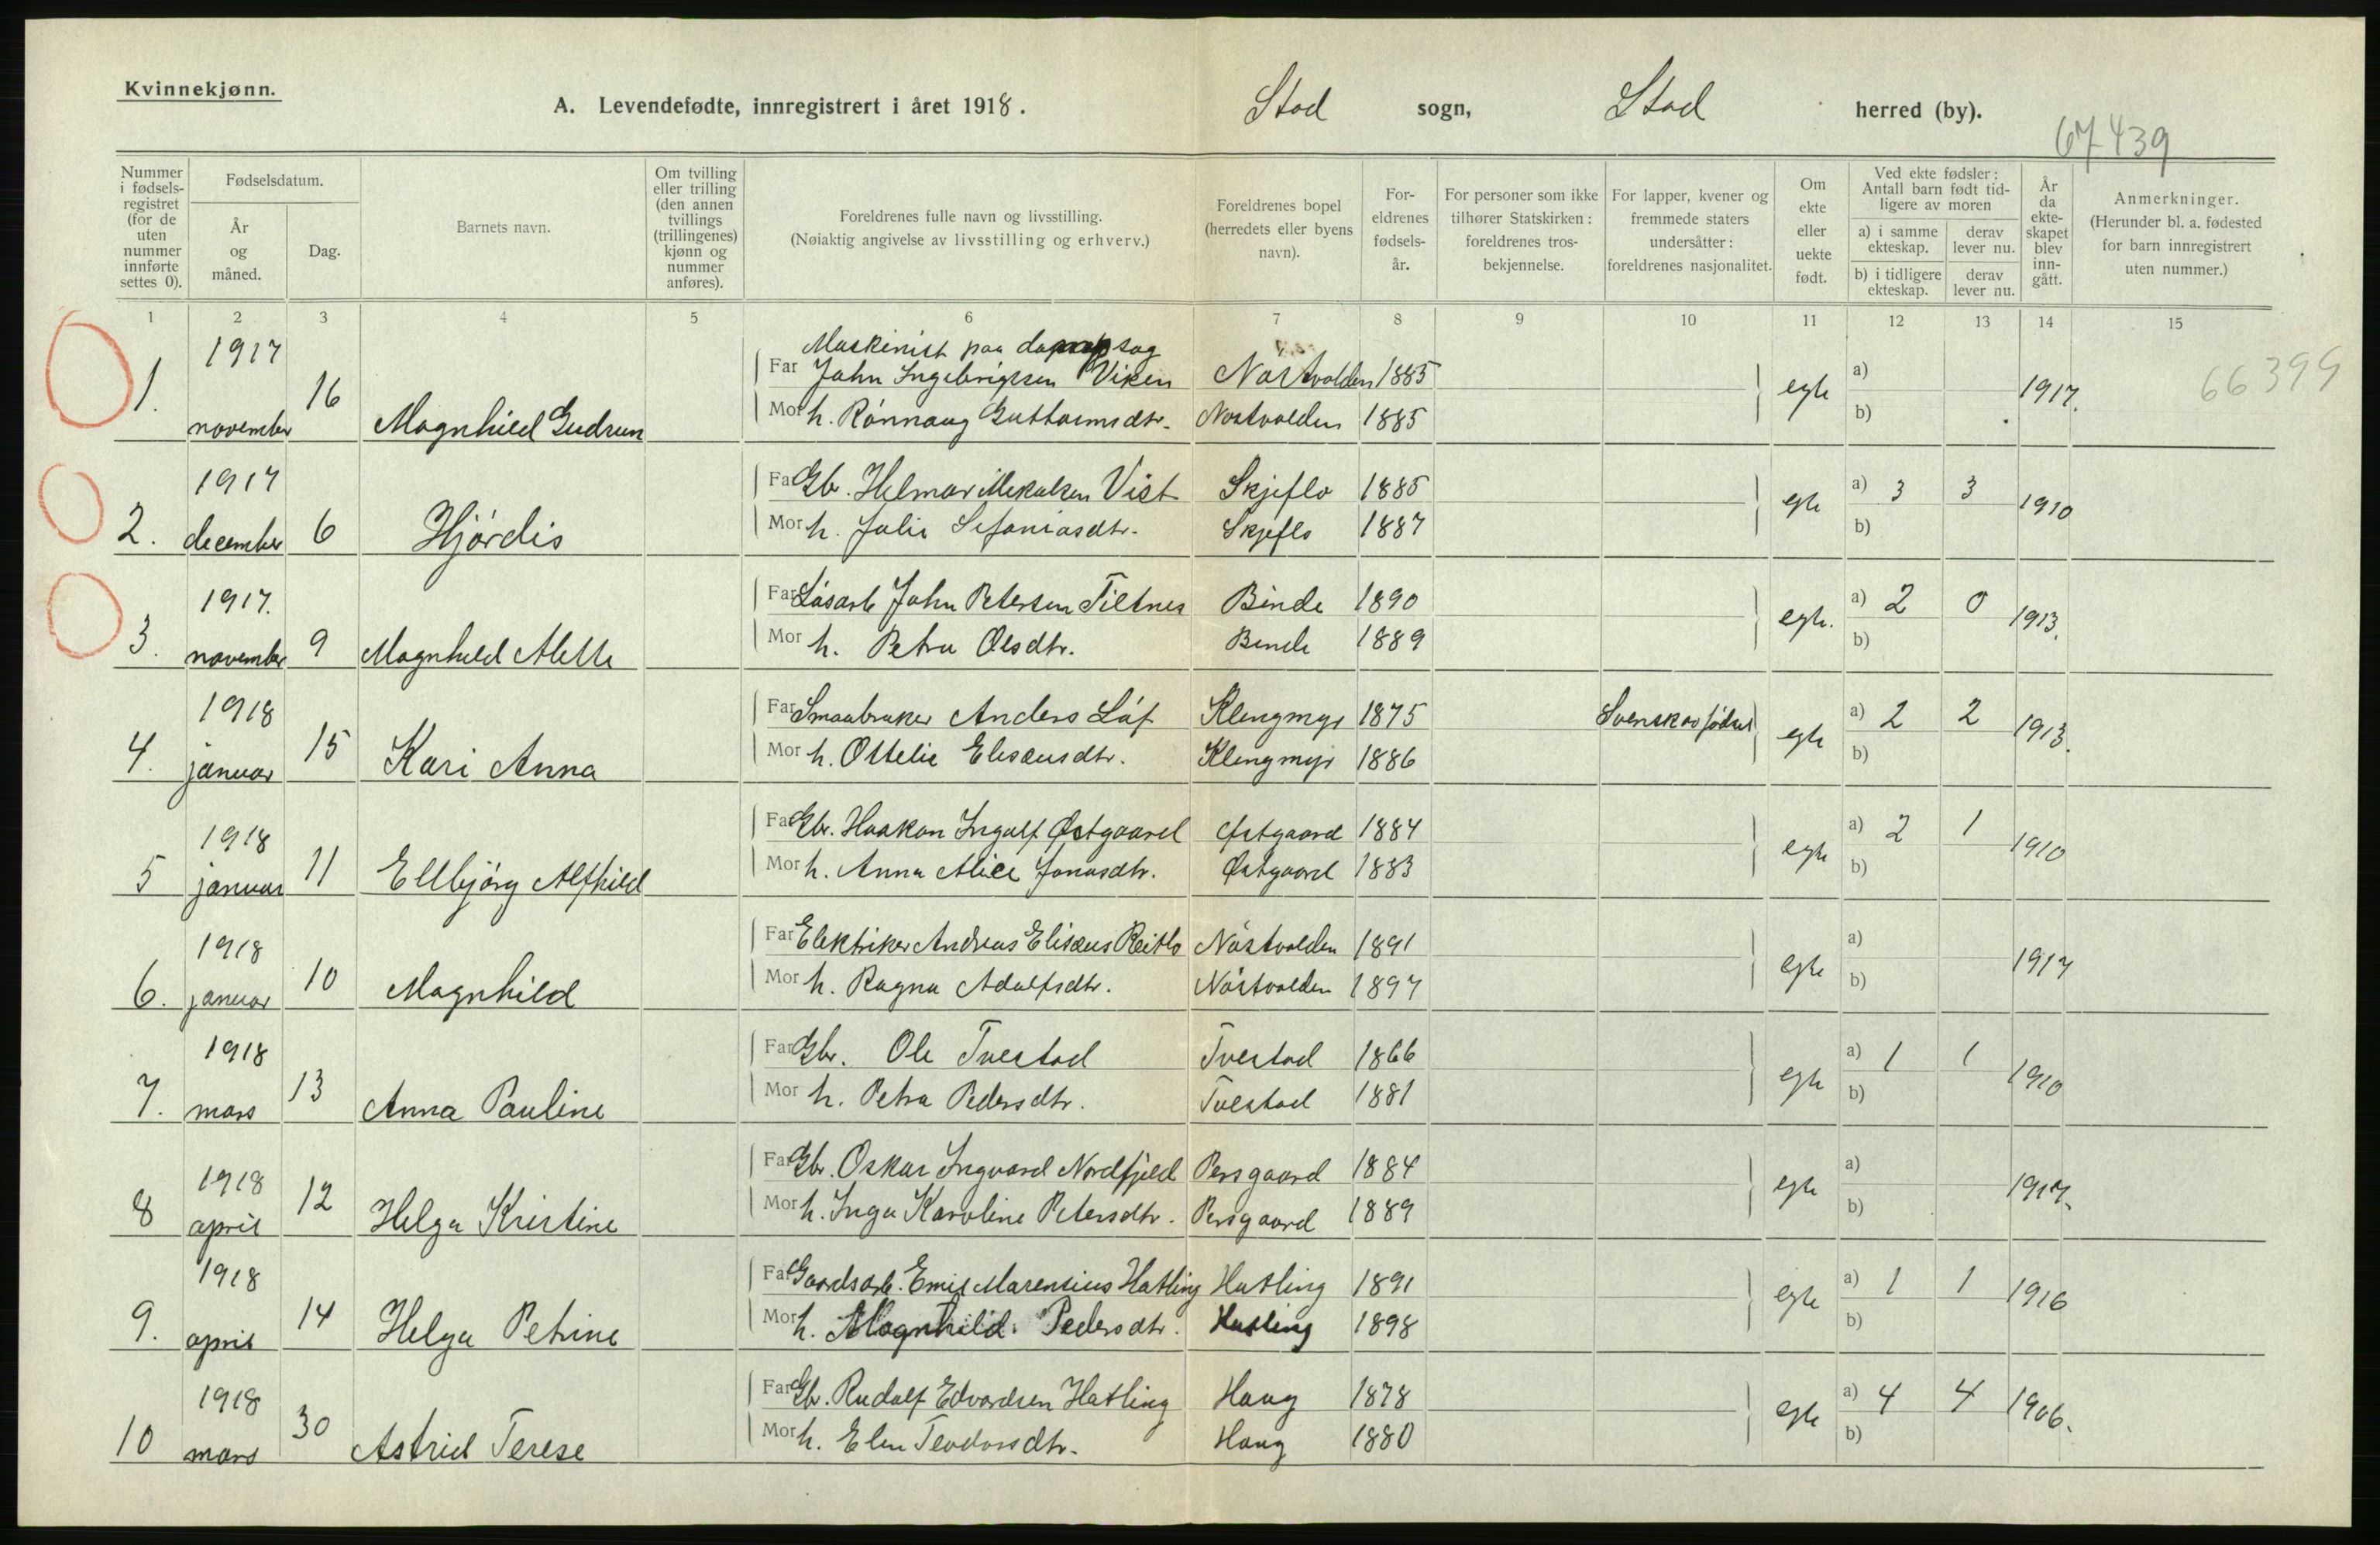 Kvinnekjønn.
A. Levendefødte, innregistrert i året 1918. Stod sogn, Stod herred (by).
67439
Nummer i fødsels-registret (for de uten nummer innførte settes 0).
Fødselsdatum.
År og måned.
Dag.
Barnets navn.
Om tvilling eller trilling (den annen tvillings (trillingenes) kjønn og nummer anføres).
Foreldrenes fulle navn og livsstilling.
(Nøiaktig angivelse av livsstilling og erhverv.)
Foreldrenes bopel (herredets eller byens navn).
For-eldrenes fødsels-år.
For personer som ikke tilhører Statskirken: foreldrenes tros-bekjennelse.
For lapper, kvener og fremmede staters undersåtter: foreldrenes nasjonalitet.
Om ekte eller uekte født.
Ved ekte fødsler: Antall barn født tid-ligere av moren
a) i samme ekteskap.
derav lever nu.
b) i tidligere ekteskap.
derav lever nu.
År da ekte-skapet blev inn-gått.
Anmerkninger.
(Herunder bl. a. fødested for barn innregistrert uten nummer.)
1 2 3 4 5 6 7 8 9 10 11 12 13 14 15
Maskinist paa dampsag
1. 1917 november 16 Magnhild Gudrun
Far John Ingebrigtsen Viken Nøstvolden 1885 egte a) 1917. 66399
Mor h. Rønnaug Guttormsdtr. Nøstvolden 1885 b)
2. 1917 december 6 Hjørdis
Far Gbr. Helmar Mikalsen Vist Skjeflo 1885 egte a) 3 3 1910
Mor h. Julie Sefaniasdtr. Skjeflo 1887 b)
3. 1917. november 9 Magnhild Alette
Far Løsarb John Petersen Tiltnes Binde 1890 egte. a) 2 0 1913.
Mor h. Petra Olsdtr. Binde 1889 b)
4. 1918 januar 15 Kari Anna
Far Smaabruker Anders Løf Klengmyr 1875 Svensk av fødsel egte a) 2 2 1913.
Mor h. Ottelie Elisæusdtr. Klengmyr 1886 b)
5 1918 januar 11 Ellbjørg Alfhild
Far Gbr. Haakon Ingolf Østgaard Østgaard 1884 egte a) 2 1 1910
Mor h. Anna Alice Jonasdtr. Østgaard 1883 b)
6. 1918 januar 10 Magnhild
Far Elektriker Andreas Elisæus Reitlo Nøstvolden 1891 egte a) 1917
Mor h. Ragna Adolfsdtr. Nøstvolden 1897 b)
7. 1918 mars 13 Anna Pauline
Far Gbr. Ole Tvestad Tvestad 1866 egte a) 1 1 1910
Mor h. Petra Pedersdtr. Tvestad 1881 b)
8 1918 april 12 Helga Kristine
Far Gbr. Oskar Ingvard Nordfjeld Persgaard 1884 egte a) 1917.
Mor h. Inga Karoline Petersdtr. Persgaard 1889 b)
9. 1918 april 14 Helga Petrine
Far Gaardsarb. Emil Marensius Hatling Hatling 1891 egte a) 1 1 1916
Mor h. Magnhild Pedersdtr. Hatling 1898 b)
10 1918 mars 30 Astrid Terese
Far Gbr. Rudolf Edvardsen Hatling Haug 1878 egte a) 4 4 1906.
Mor h. Elen Teodorsdtr. Haug 1880 b)